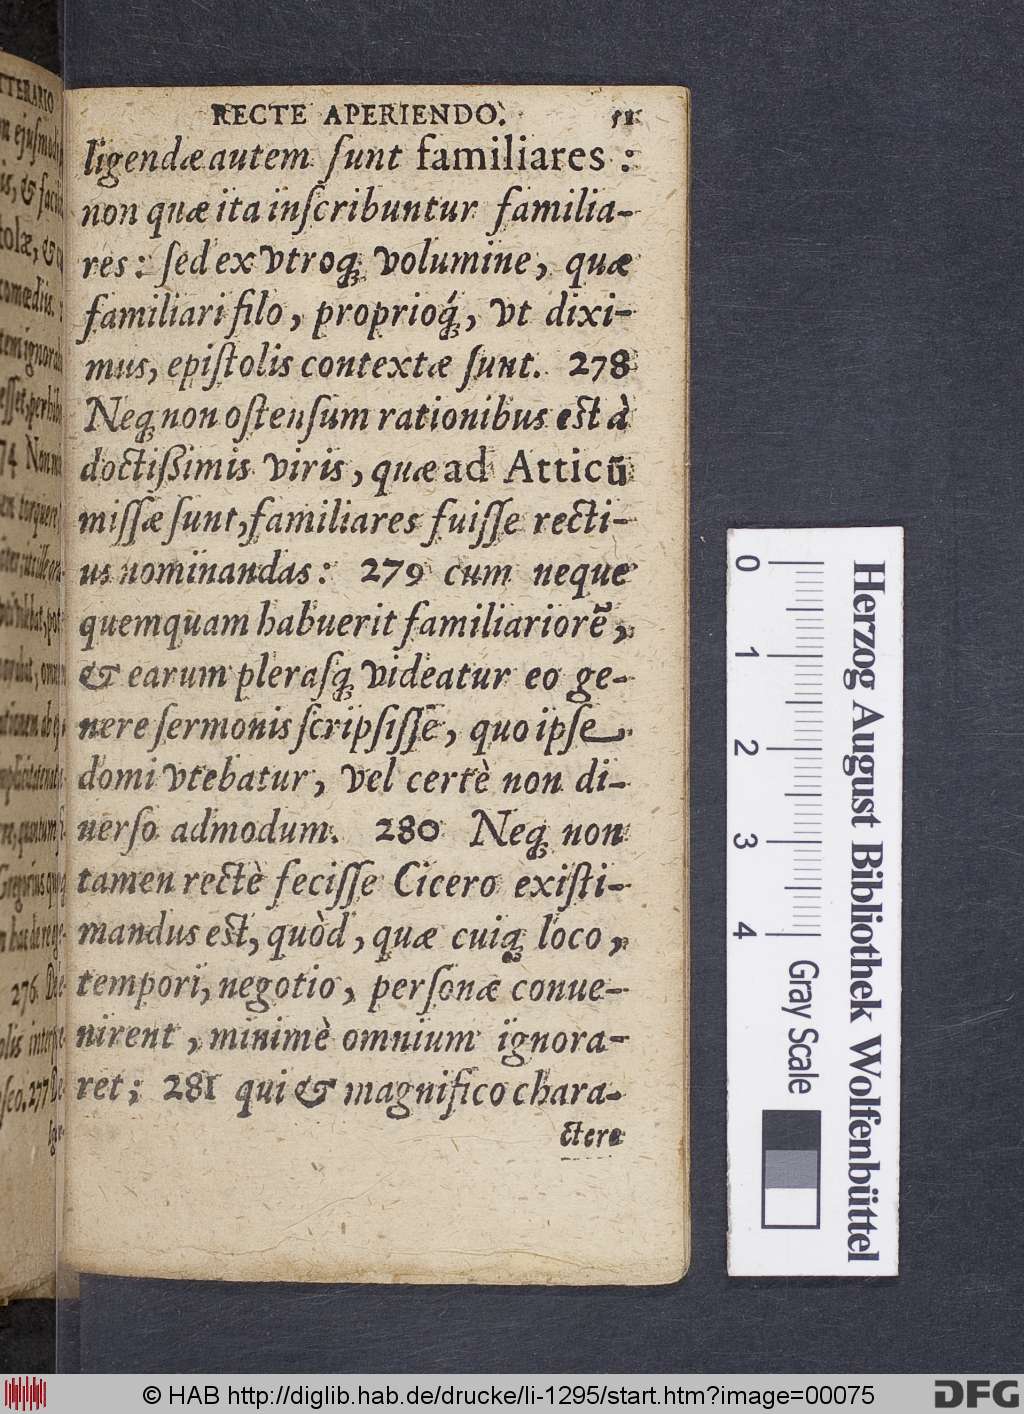 RECTE APERIENDO. 51
ligendæ autem sunt familiares :
non quæ ita inscribuntur familia-
res : sed ex vtroq; volumine, quæ
familiari filo, proprioq́;, vt dixi-
mus, epistolis contextæ sunt. 278
Neq; non ostensum rationibus est à
doctißimis viris, quæ ad Atticū
missæ sunt, familiares fuisse recti-
us nominandas : 279 cum neque
quemquam habuerit familiariorē,
& earum plerasq; videatur eo ge-
nere sermonis scripsisse, quo ipse
domi vtebatur, vel certè non di-
uerso admodum. 280 Neq; non
tamen rectè fecisse Cicero existi-
mandus est, quòd, quæ cuiq; loco,
tempori, negotio, personæ conue-
nirent, minimè omnium ignora-
ret ; 281 qui & magnifico chara-
ctere
TTERARIO
276. De
277 De
lige-
0 1 2 3 4
Gray Scale
Herzog August Bibliothek Wolfenbüttel
© HAB http://diglib.hab.de/drucke/li-1295/start.htm?image=00075
DFG